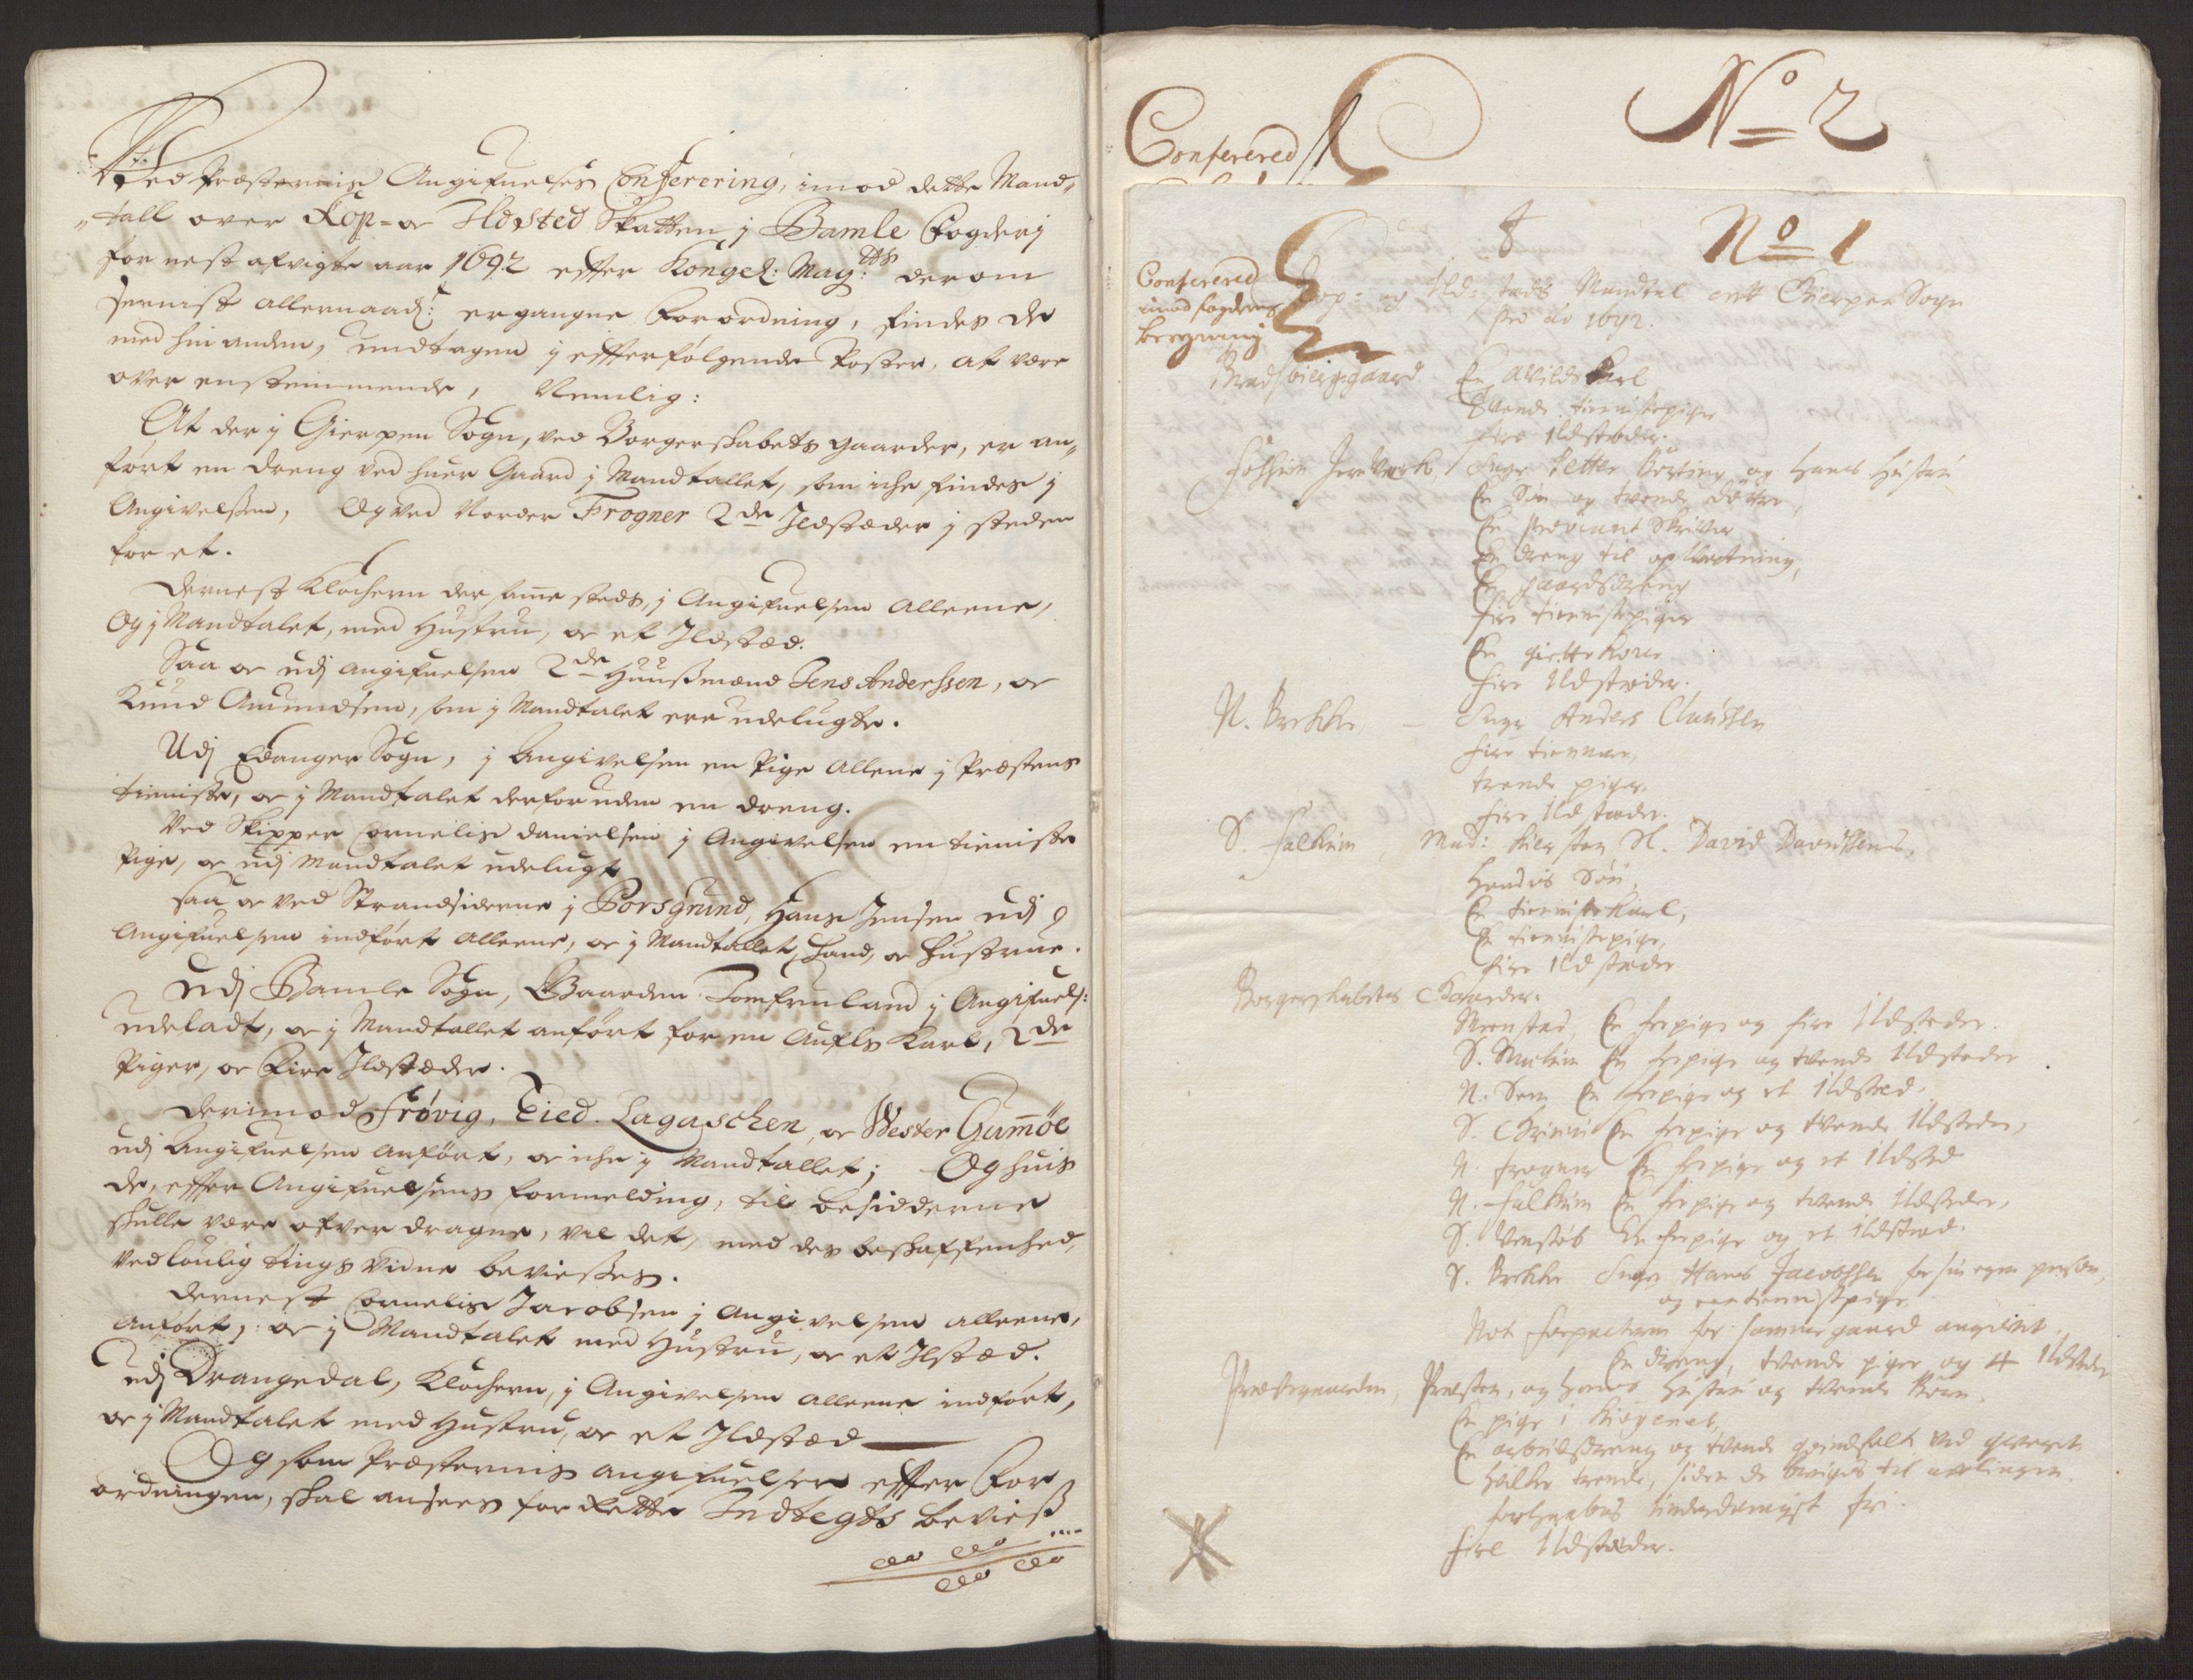 Ved Præsternis Angifuelses Conferering, imod dette Mand„
„tall over Kop- oc Ildsted Skatten j Bamle Fogderj
for nest afvigte aar 1692 effter Kongel: May:tts derom
sernist allernaadt: ergangne Forordning, findes de
med hin anden, undtagen j effterfølgende Poster, at være
over ensstemmende, Nemlig:
At der j Gierpen Sogn, ved Borgerskabets gaarder, er an„
ført en dreng ved huer Gaard j Mandtallet, som iche findes j
Angivelssen, Og ved Norder Frogner 2de Ildstæder j steden
for et.
Dernest Klochern der samme steds, j Angifuelsen alleene,
Og j Mandtalet, med Hustru, oc et Ildstæd.
Saa oc udj angifuelsen 2de Huussmænd Jens Anderssen, oc
Knud Amundsen, som j Mandtalet ere udelugte.
Udj Edanger Sogn, j Angivelsen en Pige allene j Præstens
tieniste, oc j Mandtalet derforuden en dreng.
Ved Skipper Cornelis Danielsen j Angivelsen en tieniste
Pige, oc udj Mandtalet udelugt
Saa oc ved Strandsiderne j Porsgrund, Hans Jensen udj
Angifuelsen indført alleene, oc j Mandtallet, Hand, oc Hustrue.
Udj Bamle Sogn, Gaarden Tomfruland j Angifuels:
udeladt, oc j Mandtallet anført for en Aufls Karl, 2de
Piger, oc Fire Ildstæder.
Derimod Frøvig, Eied. Lagaschen, oc Wester Gumøe
udj Angifuelsen anført, oc iche j Mandtallet; Og huis
de, effter Angifuelsens formelding, til besidderne
skulle være ofver dragne, vil det, med des beskaffenhed,
ved louglig tings vidne beviesses.
Dernest Cornelis Jacobsen j Angivelsen alleene,
anført, oc j Mandtalet med Hustru, oc et Ilstæd.
Udj Drangedal, Klochern, j Angivelsen alleene indført,
oc j Mandtalet med Hustru, oc et Ildstæd
Og som Præsternis angifuelser effter For
ordningen, skal ansees for Rette Indtegts beviess
No 2
Conferered
8
No 1
Conferered
imod fogdens
beregning
Kop- og Ild- steds Mandtal ofver Gierpen Sogn
pro Ao 1692.
Bradsbierggaard En Avilds Karl
Tvende tienistepiger
fire Ildstæder.
Fossum Jernverk, Sigr Petter Børting og hans Hustru
En Søn og tvende Døttre,
En Proviant Skriver
En dreng til opVartning,
En gaardsdreng
fire tienistepiger
En giette Kone
Fire Ildstæder.
N. Brekke, Sigr Anders Clausssen
fire tiennere,
trende piger,
fire Ildstæder.
S. Falkum, Mad: Kiersten Sl. David Davidssens,
Hendis Søn,
En tienistekarl,
En tienistepige,
fire Ildstæder
Borgerskabetes Gaarder.
Meenstad, En fepige og fire Ildsteder.
S. Mælum En fepige og tvende Ildsteder
N. Sem En fepige og et Ildsted.
S. Grini En fepige og tvende Ildsteder,
N. Frogner En fepige og et Ildsted
N. Falkum En fepige og tvende Ildsteder,
S. Venstøb En fepige og et Ildsted.
S. Brekke Sigr Hans Jacobssen for sin egen person,
og een tienistpige,
Not forpactern for samme gaard angivet
En dreng, tvende piger og 4 Ildsteder
Præstegaarden, Præsten, og hans Hustru og tvende Børn.
En pige i kiøgenet,
En arbeidsdreng og tvende qvindfolk ved qveget
hvilke trende, siden de bruges til avlingen
forhaabes underdanigst fri.
Fire Ildstæder.